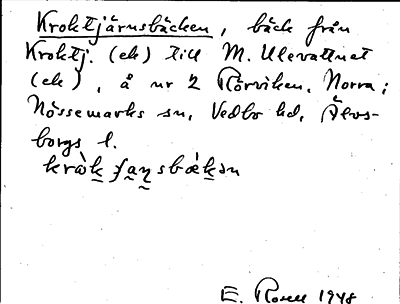 Kroktjärnsbäcken, bäck från
Kroktj. (ek) till M. Ulevattnet
(ek), å nr 2 Rörviken, Norra;
Nössemarks sn, Vedbo hd, Älvs-
borgs l.
E. Rosell 1948